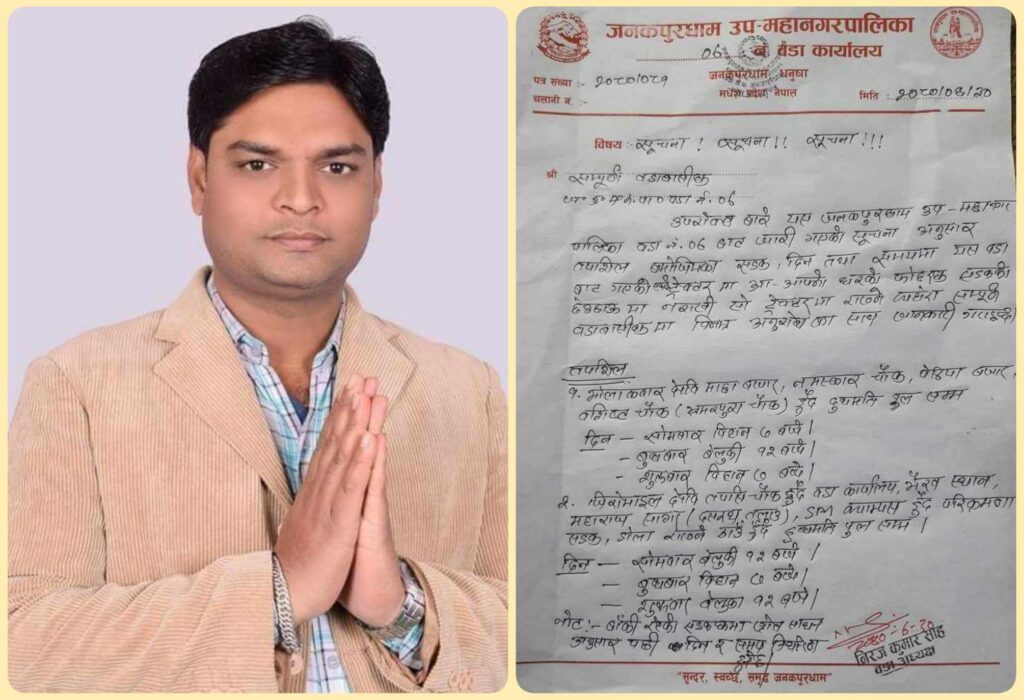 जनकपुरधाम उप-महानगरपालिका
06 नं वडा कार्यालय
जनकपुरधाम, धनुषा
मधेश प्रदेश, नेपाल
पत्र संख्या :- २०८०/०८१
चलानी नं. :-
मिति : २०८०/०६/२०
विषय :- सूचना ! सूचना !! सूचना !!!
श्री सम्पूर्ण वडावासीहरू
ज.उ.म.न.पा० वडा नं. 06
उपरोक्त बारे यस जनकपुरधाम उप-महानगर
पालिका वडा नं. 06 बाट जारी गएको सूचना अनुसार
तपशिल बमोजिमका सडक, दिन तथा समयमा यस वडा
बाट गएको ट्रेक्टर मा आ-आफ्नो घरको फोहरहरू सडकको
मा नराखी सो ट्रेक्टरमा राख्ने सम्पूर्ण
वडावासीहरूमा विनम्र अनुरोधका साथ जानकारी गराइन्छ।
तपशिल
१. देखि माछा बजार, नमस्कार चौक, बजार,
चौक ( चौक) हुँदै दुधमति पुल सम्म
दिन – सोमवार बिहान ७ बजे।
– बुधबार बेलुकी १२ बजे।
– शुक्रबार बिहान ७ बजे।
२. जिरोमाइल देखि चौक हुँदै वडा कार्यालय, भैरव स्थान,
महाराज सागर (दसरथ तलाउ), क्याम्पस हुँदै परिक्रमा
सडक, डोला राख्ने ठाउँ हुँदै दुधमति पुल सम्म।
दिन – सोमवार बेलुकी १२ बजे।
– बुधबार बिहान ७ बजे।
– शुक्रवार बेलुका १२ बजे।
नोट :- बाँकी रहेको सडकहरूमा स्रोत साधन
अनुसार पछी दिन र समय निर्धारण
हुनेछ।
2080-6-20
निरज कुमार सिंह
वडा अध्यक्ष
"सुन्दर, स्वच्छ, समृद्ध जनकपुरधाम"